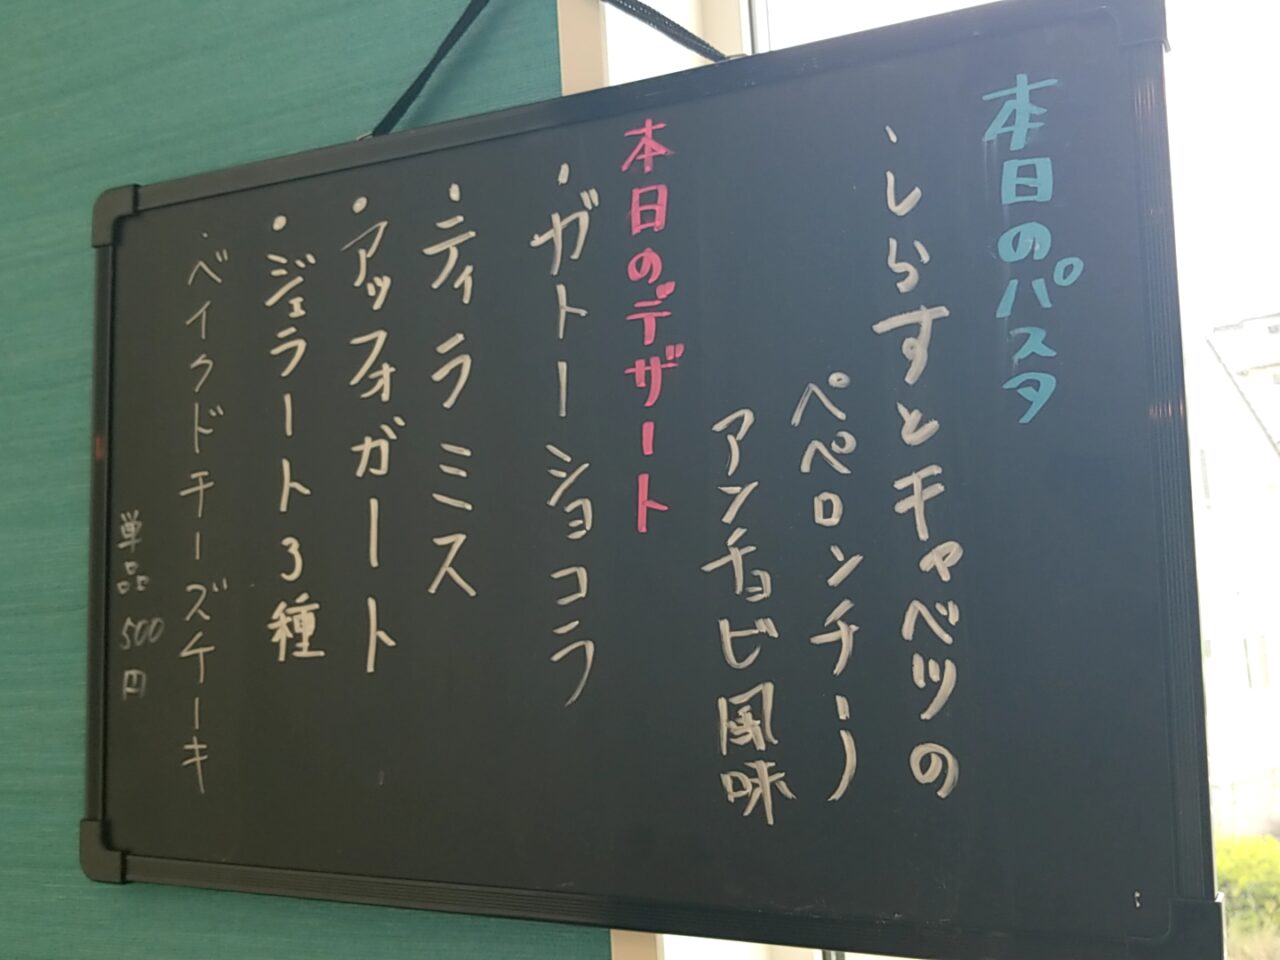 本日のパスタ
・しらすとキャベツの
ペペロンチーノ
アンチョビ風味
本日のデザート
・ガトーショコラ
・ティラミス
・アッフォガート
・ジェラート3種
・ベイクドチーズケーキ
単品500円